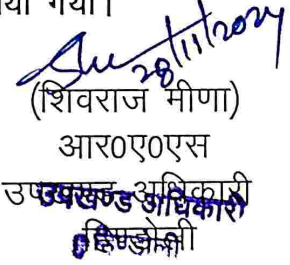 गया।
28/11/2024
(शिवराज मीणा)
आर०ए०एस
उपखण्ड अधिकारी
उपखण्ड अधिकारी
हिण्डोली